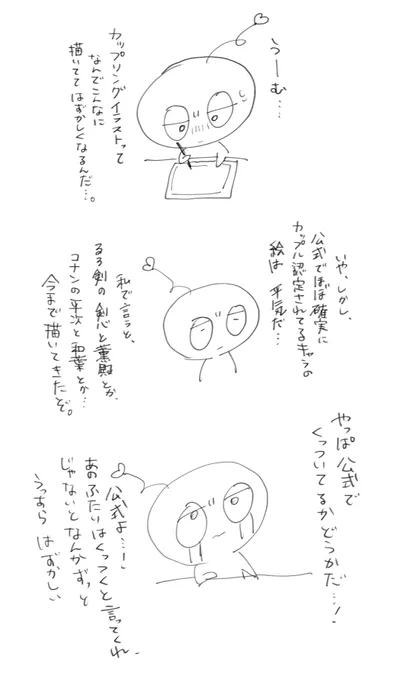 うーむ…
カップソングイラストって
なんでこんなに
描いてて はずかしくなるんだ…。
いや、しかし、
公式でほぼ確実に
カップル認定されてるキャラの
絵は 平気だ…
私で言うと、
るろ剣の 剣心と薫殿とか、
コナンの平次と和葉とか…
今まで描いてきたとぞ。
やっぱ公式で
くっついてるかどうかだ…!
公式よ…!
あのふたりはくっつくと言ってくれ、
じゃないとなんかずっと
うっすら はずかしい